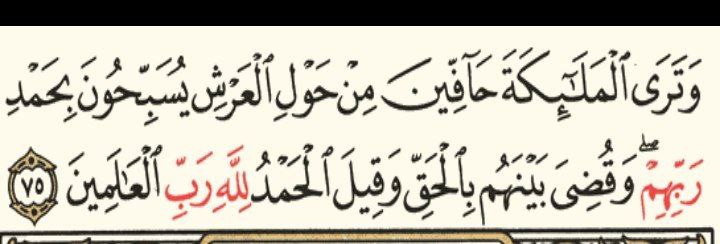 وَتَرَى ٱلْمَلَـٰٓئِكَةَ حَآفِّينَ مِنْ حَوْلِ ٱلْعَرْشِ يُسَبِّحُونَ بِحَمْدِ
رَبِّهِمْۖ وَقُضِىَ بَيْنَهُم بِٱلْحَقِّ وَقِيلَ ٱلْحَمْدُ لِلَّهِ رَبِّ ٱلْعَـٰلَمِينَ ٧٥